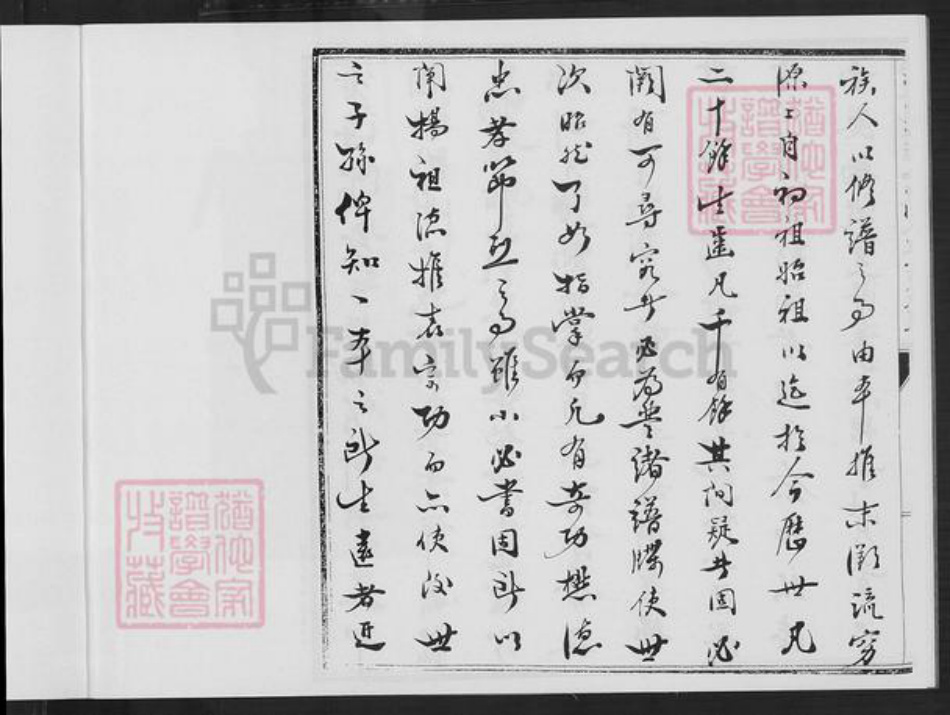 族人以修譜之事由本推末溯流窮
源上自初祖始祖以迄於今歷世凡
二十餘生齒凡千有餘其間疑者固必
闕有可尋究者必為登諸譜牒使世
次昭然了如指掌而凡有奇功懋德
忠孝節烈之事雖小必書固所以
闡揚祖德推表宗功而亦使後世
之子孫俾知一本之所生遠者近
猶他家
譜學會
技藏
FamilySearch
猶他家
譜學會
技藏